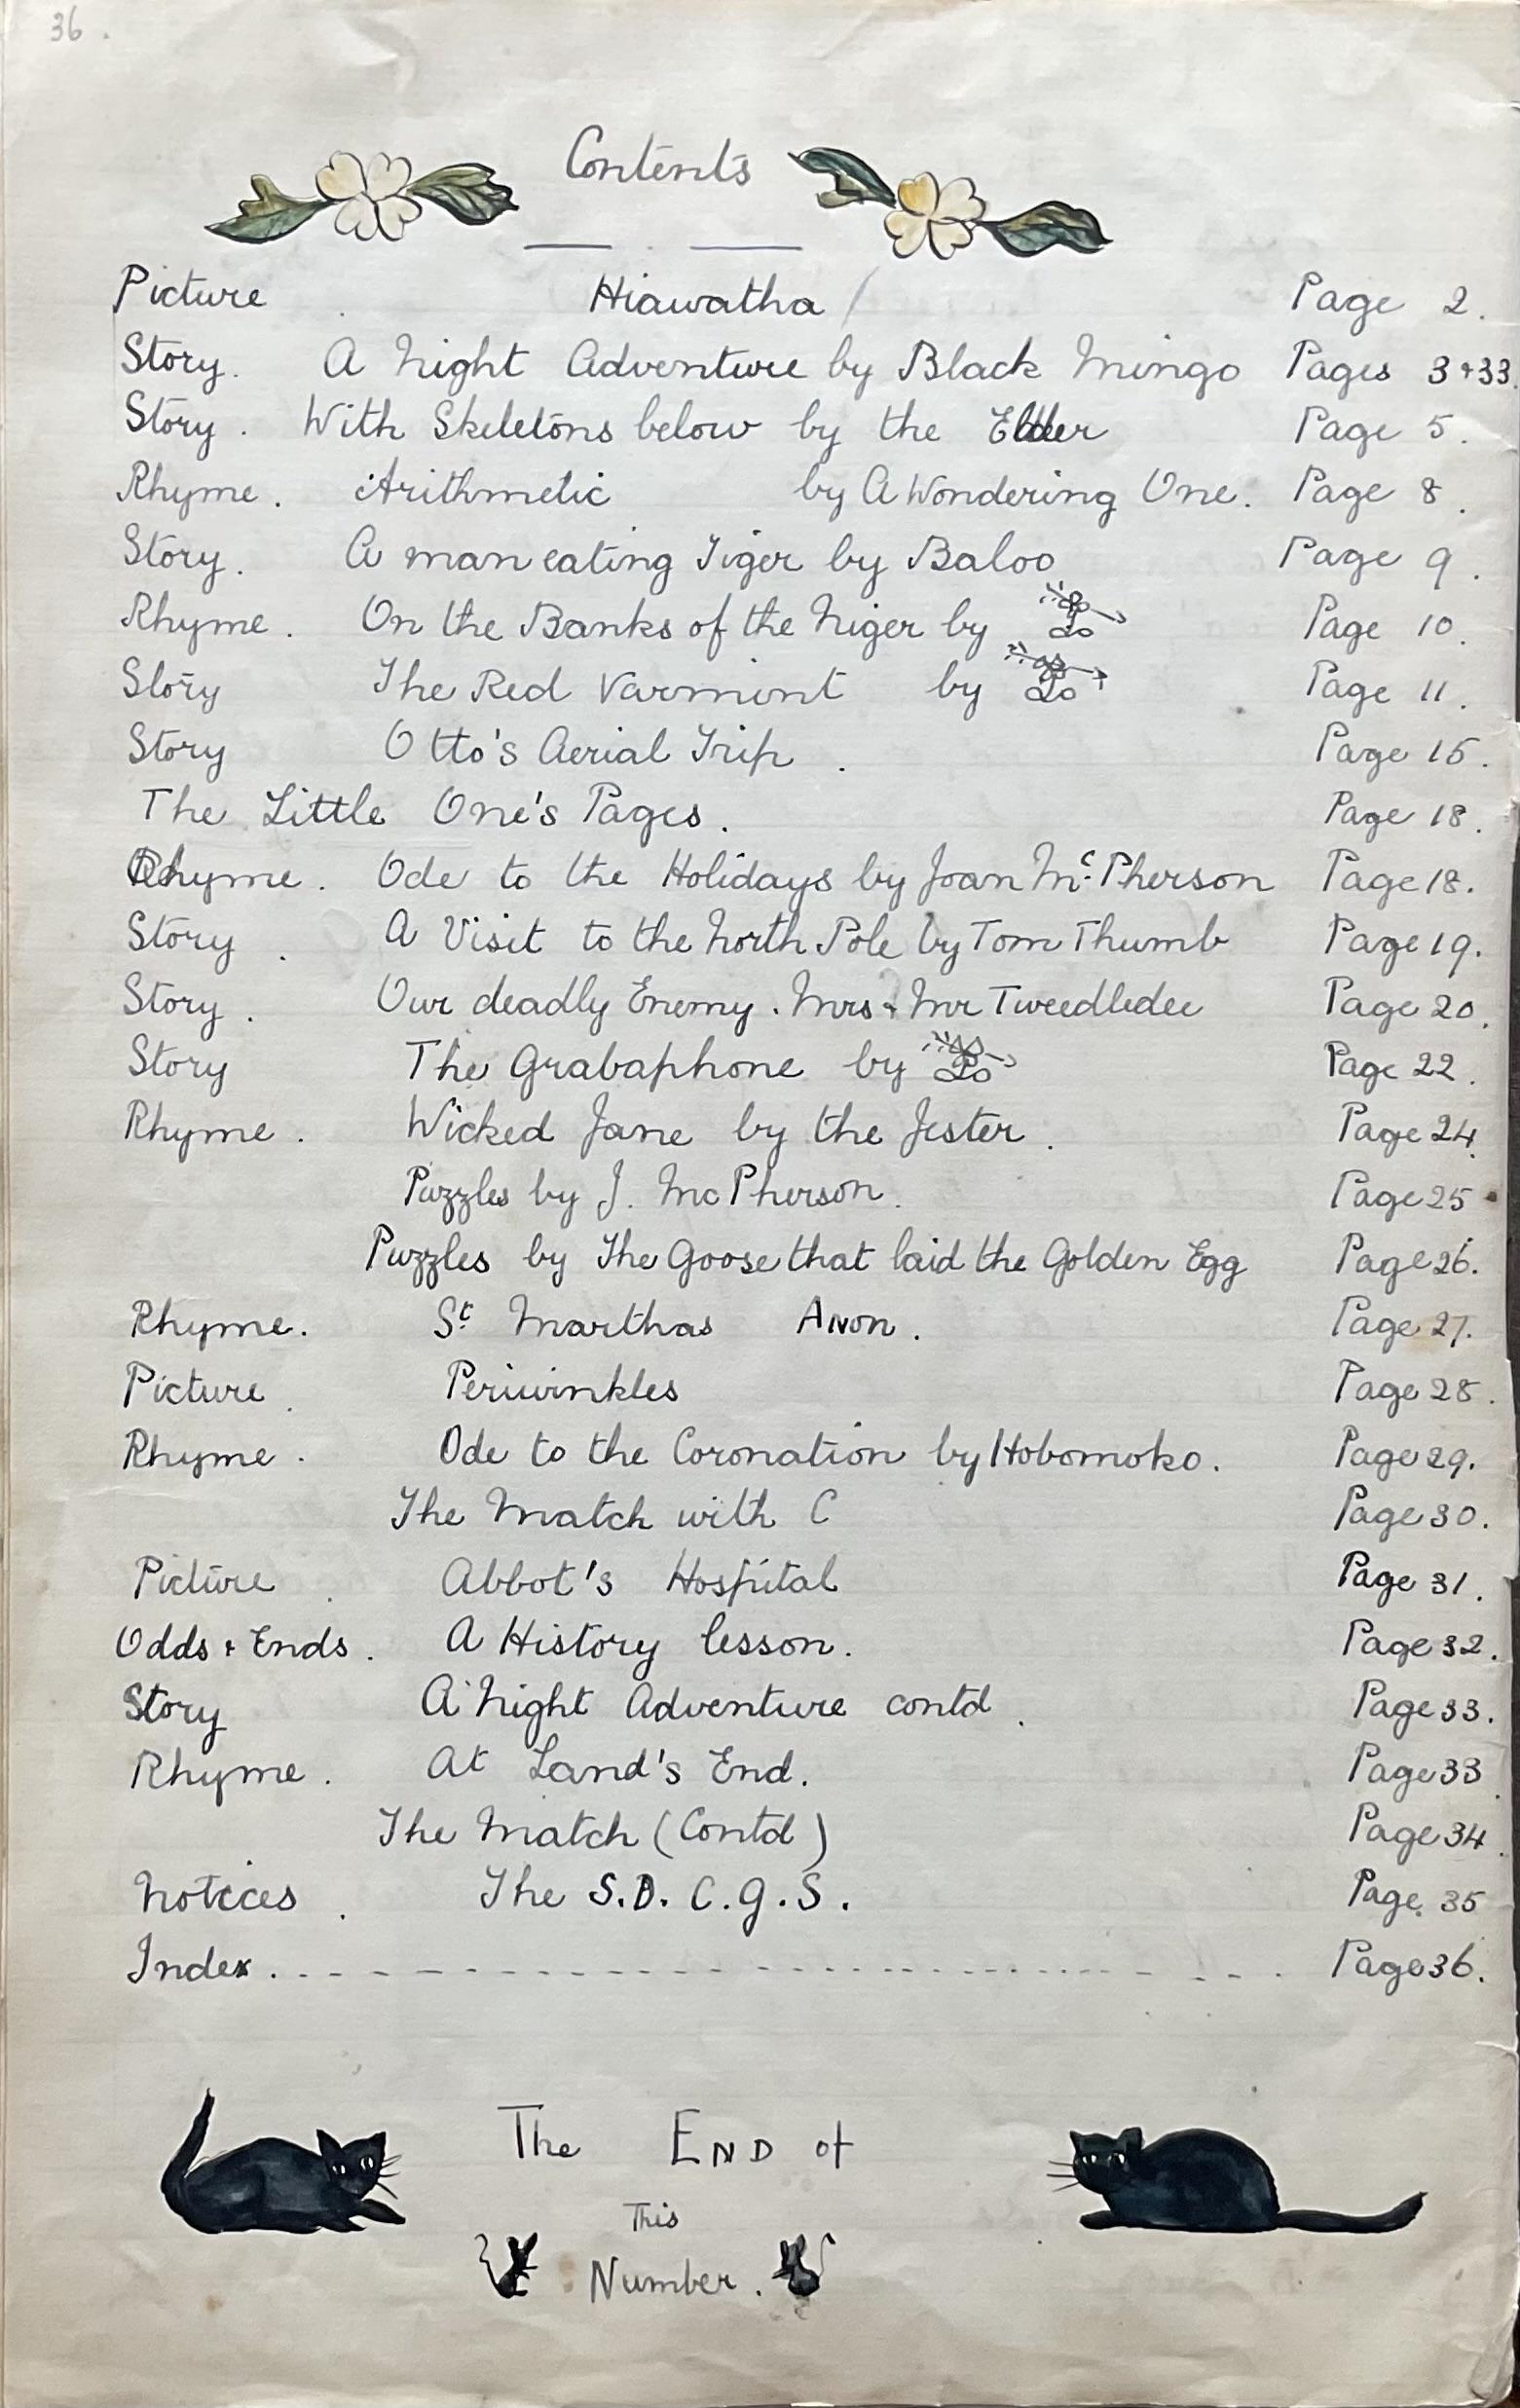 36.
Contents
Picture Hiawatha Page 2.
Story. A Night Adventure by Black Mingo Pages 3 + 33.
Story. With Skeletons below by the Elder Page 5.
Rhyme. Arithmetic by A Wondering One. Page 8.
Story. A man eating Tiger by Baloo Page 9.
Rhyme. On the Banks of the Niger by Lo Page 10.
Story The Red Varmint by Lo Page 11.
Story Otto's Aerial Trip. Page 15.
The Little One's Pages. Page 18.
Rhyme. Ode to the Holidays by Joan Mc.Pherson Page 18.
Story. A Visit to the North Pole by Tom Thumb Page 19.
Story. Our deadly Enemy. Mrs + Mr Tweedledee Page 20.
Story The Grabaphone by Lo Page 22.
Rhyme. Wicked Jane by the Jester. Page 24.
Puzzles by J. McPherson. Page 25
Puzzles by The Goose that laid the Golden Egg Page 26.
Rhyme. St. Marthas Anon. Page 27.
Picture. Periwinkles Page 28.
Rhyme. Ode to the Coronation by Hobomoko. Page 29.
The Match with C Page 30.
Picture. Abbot's Hospital Page 31.
Odds + Ends. A History lesson. Page 32.
Story A Night Adventure contd. Page 33.
Rhyme. At Land's End. Page 33.
The Match (Contd) Page 34.
Notices. The S.D.C.G.S. Page. 35
Index. Page 36.
The END of
This
Number.